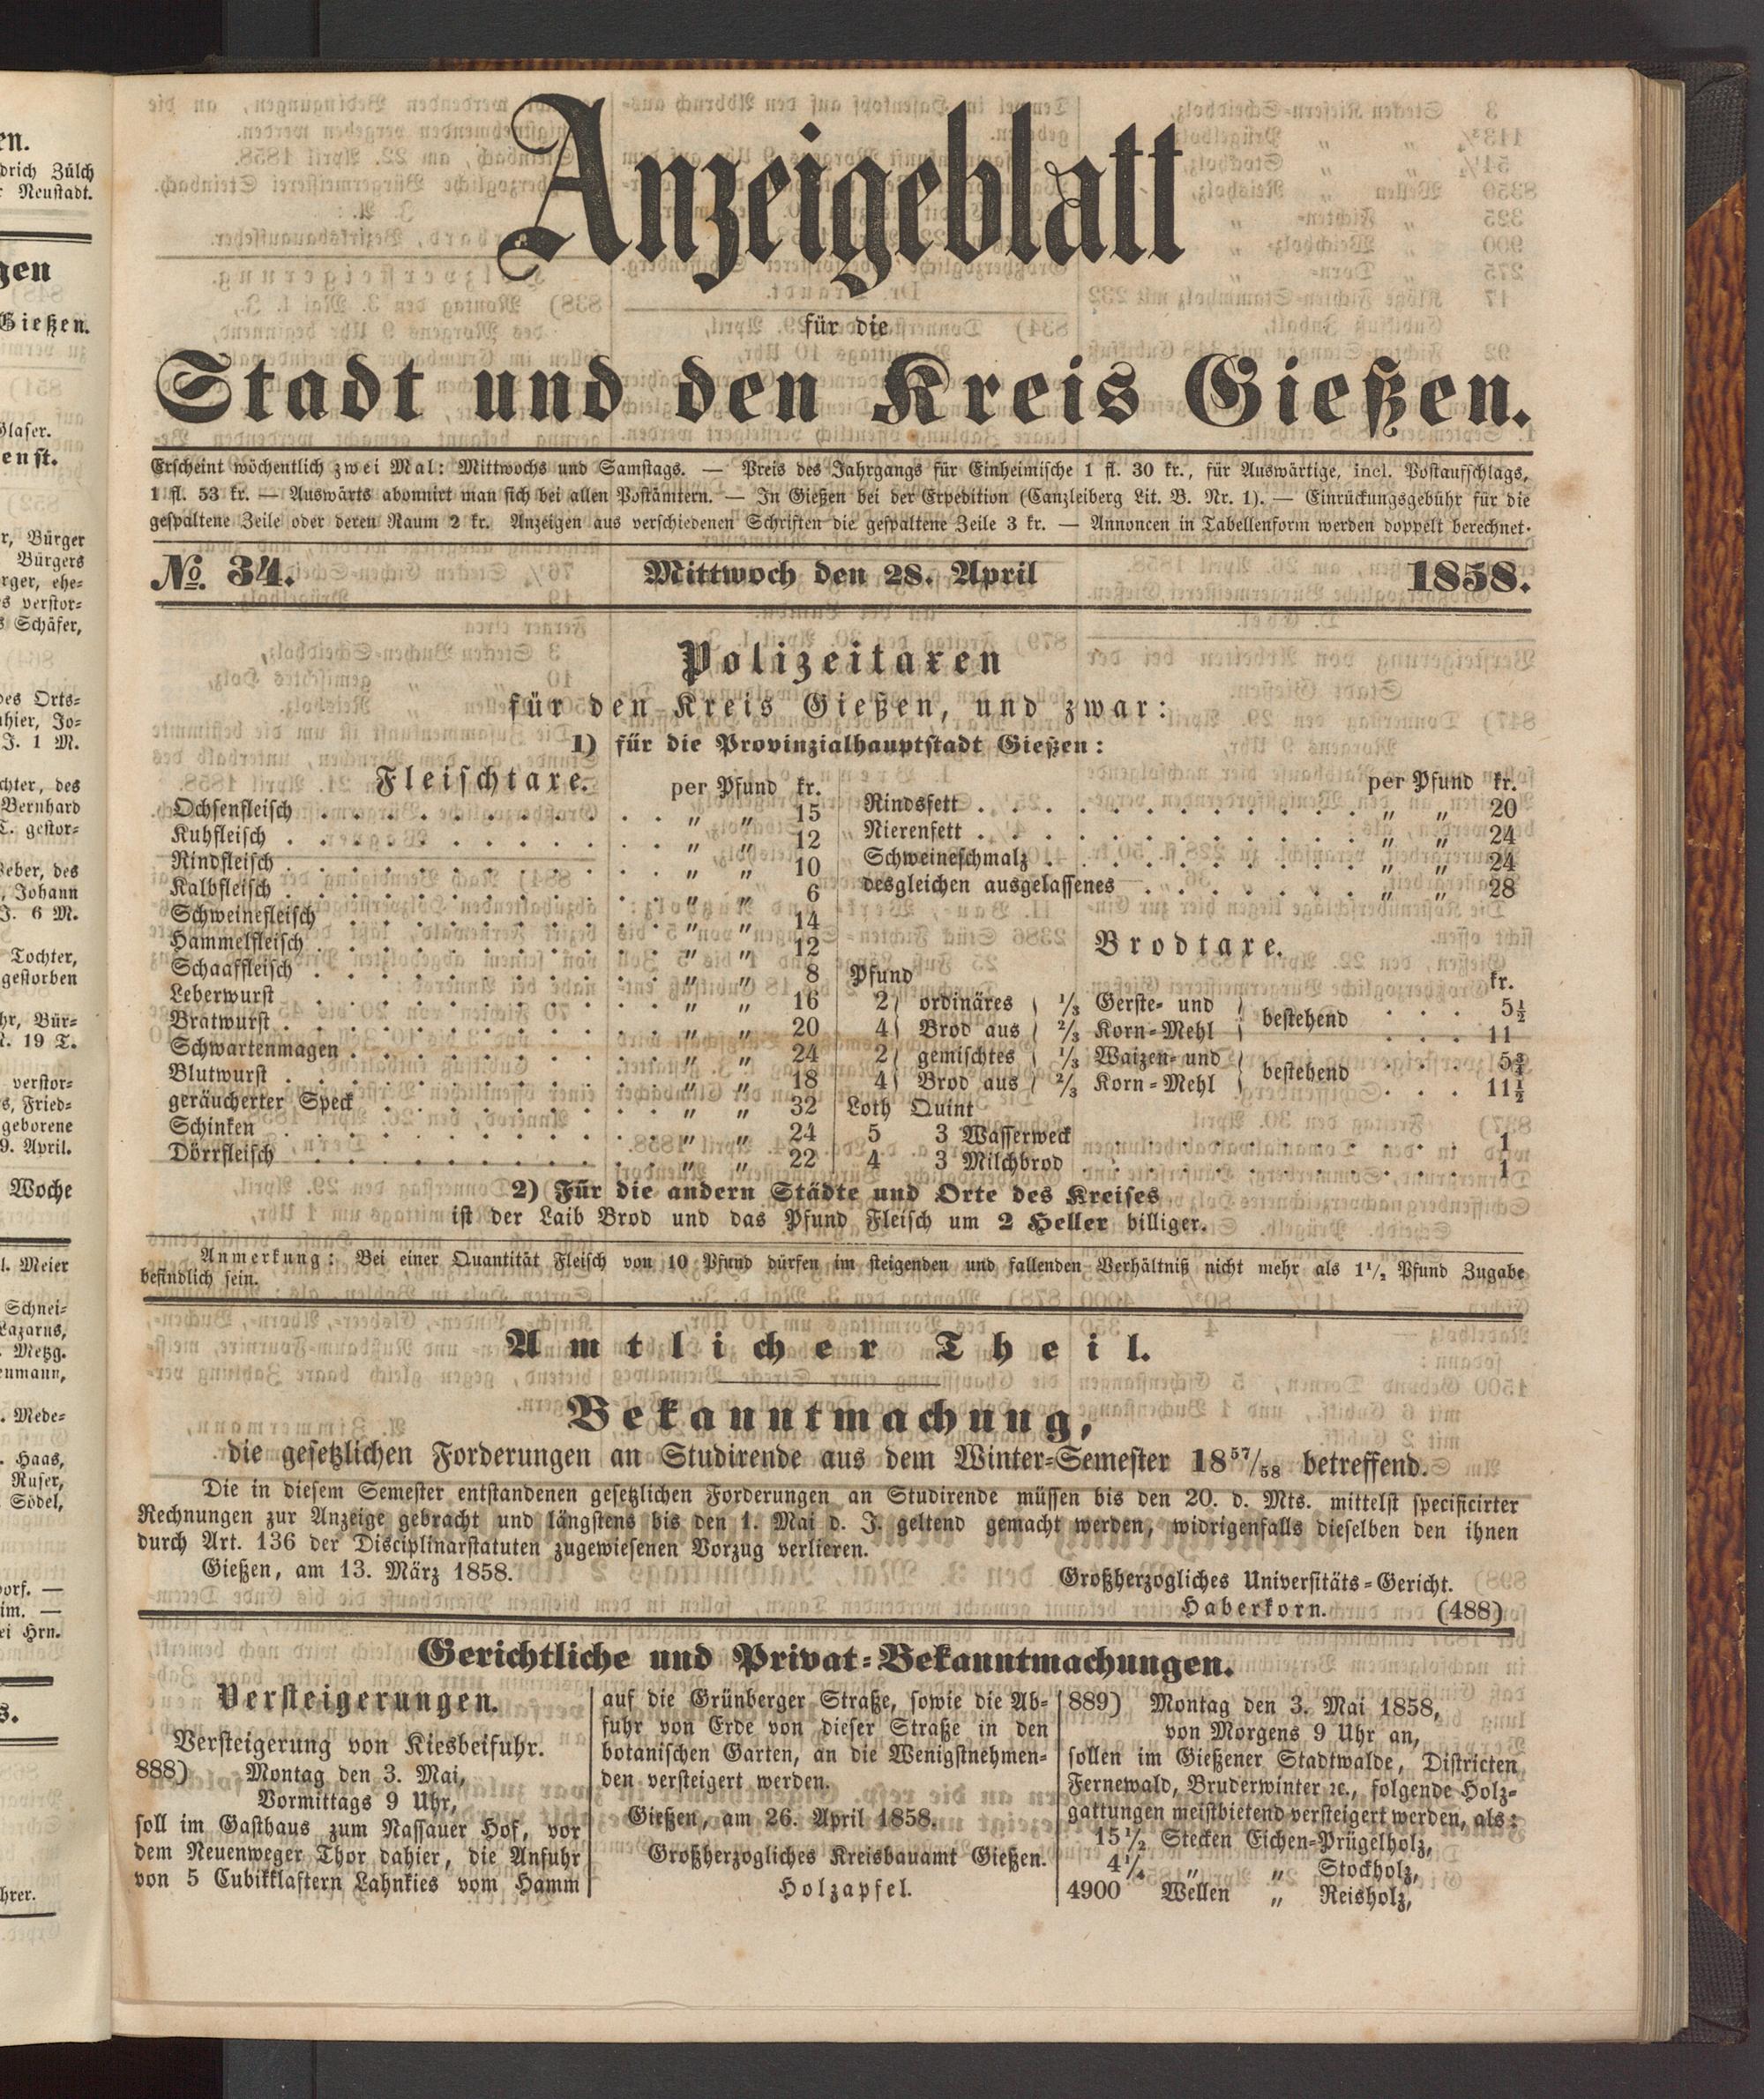 en.
drich Zülch
Neustadt.
gen
Gießen.
Glaser.
enst.
r, Bürger
Bürgers
rger, ehe-
s verstor-
s Schäfer,
des Orts-
ahier, Jo-
J. 1 M.
chter, des
Bernhard
T. gestor-
eber, des
, Johann
J. 6 M.
Tochter,
gestorben
hr, Bür-
M. 19 T.
verstor-
s, Fried-
geborene
9. April.
Woche
l. Meier
Schnei-
Lazarus,
. Metzg.
enmann,
. Mede-
. Haas,
Ruser,
Södel,
dorf. —
im. —
ei Hrn.
s.
hrer.
Anzeigeblatt
für die
Stadt und den Kreis Gießen.
Erscheint wöchentlich zwei Mal: Mittwochs und Samstags. — Preis des Jahrgangs für Einheimische 1 fl. 30 kr., für Auswärtige, incl. Postaufschlags,
1 fl. 53 kr. — Auswärts abonnirt man sich bei allen Postämtern. — In Gießen bei der Expedition (Canzleiberg Lit. B. Nr. 1). — Einrückungsgebühr für die
gespaltene Zeile oder deren Raum 2 kr. Anzeigen aus verschiedenen Schriften die gespaltene Zeile 3 kr. — Annoncen in Tabellenform werden doppelt berechnet.
No. 34. Mittwoch den 28. April 1858.
Polizeitaxen
für den Kreis Gießen, und zwar:
1) für die Provinzialhauptstadt Gießen:
Fleischtaxe. per Pfund kr.
Ochsenfleisch . . . . . . . . . . . . „ „ 15
Kuhfleisch . . . . . . . . . . . . „ „ 12
Rindfleisch . . . . . . . . . . . . „ „ 10
Kalbfleisch . . . . . . . . . . . . „ „ 6
Schweinefleisch . . . . . . . . . . . . „ „ 14
Hammelfleisch . . . . . . . . . . . . „ „ 12
Schaaffleisch . . . . . . . . . . . . „ „ 8
Leberwurst . . . . . . . . . . . . „ „ 16
Bratwurst . . . . . . . . . . . . „ „ 20
Schwartenmagen . . . . . . . . . . . . „ „ 24
Blutwurst . . . . . . . . . . . . „ „ 18
geräucherter Speck . . . . . . . . . . „ „ 32
Schinken . . . . . . . . . . . . „ „ 24
Dörrfleisch . . . . . . . . . . . . „ „ 22
per Pfund kr.
Rindsfett . . . . . . . . . . . . „ „ 20
Nierenfett . . . . . . . . . . . . „ „ 24
Schweineschmalz . . . . . . . . . . „ „ 24
desgleichen ausgelassenes . . . . . . . „ „ 28
Brodtaxe.
Pfund kr.
2 ordinäres 1/3 Gerste- und bestehend . . . 5½
4 Brod aus 2/3 Korn-Mehl . . . 11
2 gemischtes 1/3 Waizen- und bestehend . . . 5¾
4 Brod aus 2/3 Korn-Mehl . . . 11½
Loth Quint
5 3 Wasserweck . . . . . . . . . . . . 1
4 3 Milchbrod . . . . . . . . . . . . 1
2) Für die andern Städte und Orte des Kreises
ist der Laib Brod und das Pfund Fleisch um 2 Heller billiger.
Anmerkung: Bei einer Quantität Fleisch von 10 Pfund dürfen im steigenden und fallenden Verhältniß nicht mehr als 1½ Pfund Zugabe
befindlich sein.
Amtlicher Theil.
Bekanntmachung,
die gesetzlichen Forderungen an Studirende aus dem Winter-Semester 18⁵⁷/₅₈ betreffend.
Die in diesem Semester entstandenen gesetzlichen Forderungen an Studirende müssen bis den 20. d. Mts. mittelst specificirter
Rechnungen zur Anzeige gebracht und längstens bis den 1. Mai d. J. geltend gemacht werden, widrigenfalls dieselben den ihnen
durch Art. 136 der Disciplinarstatuten zugewiesenen Vorzug verlieren.
Gießen, am 13. März 1858.
Großherzogliches Universitäts-Gericht.
Haberkorn. (488)
Gerichtliche und Privat-Bekanntmachungen.
Versteigerungen.
Versteigerung von Kiesbeifuhr.
888) Montag den 3. Mai,
Vormittags 9 Uhr,
soll im Gasthaus zum Nassauer Hof, vor
dem Neuenweger Thor dahier, die Anfuhr
von 5 Cubikklaftern Lahnkies vom Hamm
auf die Grünberger Straße, sowie die Ab-
fuhr von Erde von dieser Straße in den
botanischen Garten, an die Wenigstnehmen-
den versteigert werden.
Gießen, am 26. April 1858.
Großherzogliches Kreisbauamt Gießen.
Holzapfel.
889) Montag den 3. Mai 1858,
von Morgens 9 Uhr an,
sollen im Gießener Stadtwalde, Districten
Fernewald, Bruderwinter ꝛc., folgende Holz-
gattungen meistbietend versteigert werden, als:
15½ Stecken Eichen-Prügelholz,
4¼ „ „ Stockholz,
4900 Wellen „ Reisholz,